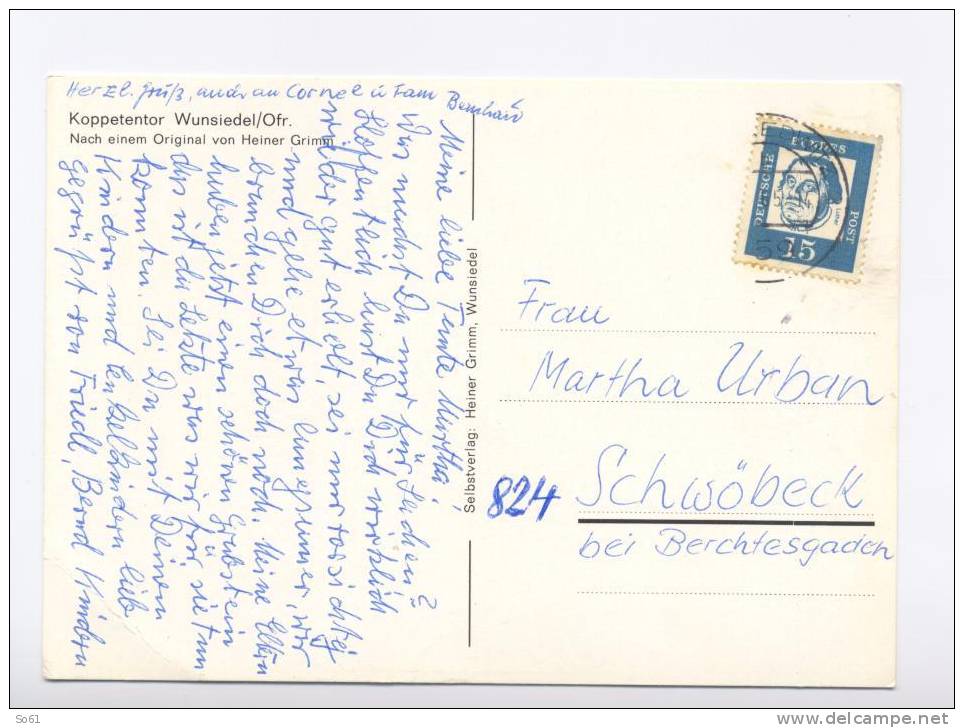 Herzl. Gruß, auch an Cornel u Fam
Koppetentor Wunsiedel/Ofr.
Nach einem Original von Heiner Grimm
Meine liebe Tante Martha!
Was machst Du nur für Sachen?
Hoffentlich hast Du Dich wirklich
wieder gut erholt, sei nur vorsichtig
und gehe etwas langsamer, wir
brauchen Dich doch noch. Meine Eltern
haben jetzt einen schönen Grabstein
das ist die Letzte was wir für sie tun
konnten. Sei Du mit Deinen
Kindern und Enkelkindern lieb
gegrüßt von Friedl, Bernd Kindern
Selbstverlag: Heiner Grimm, Wunsiedel
DEUTSCHE
BUNDES
POST
15
59
Frau
Martha Urban
824 Schwöbeck
bei Berchtesgaden
So61
www.delcampe.net